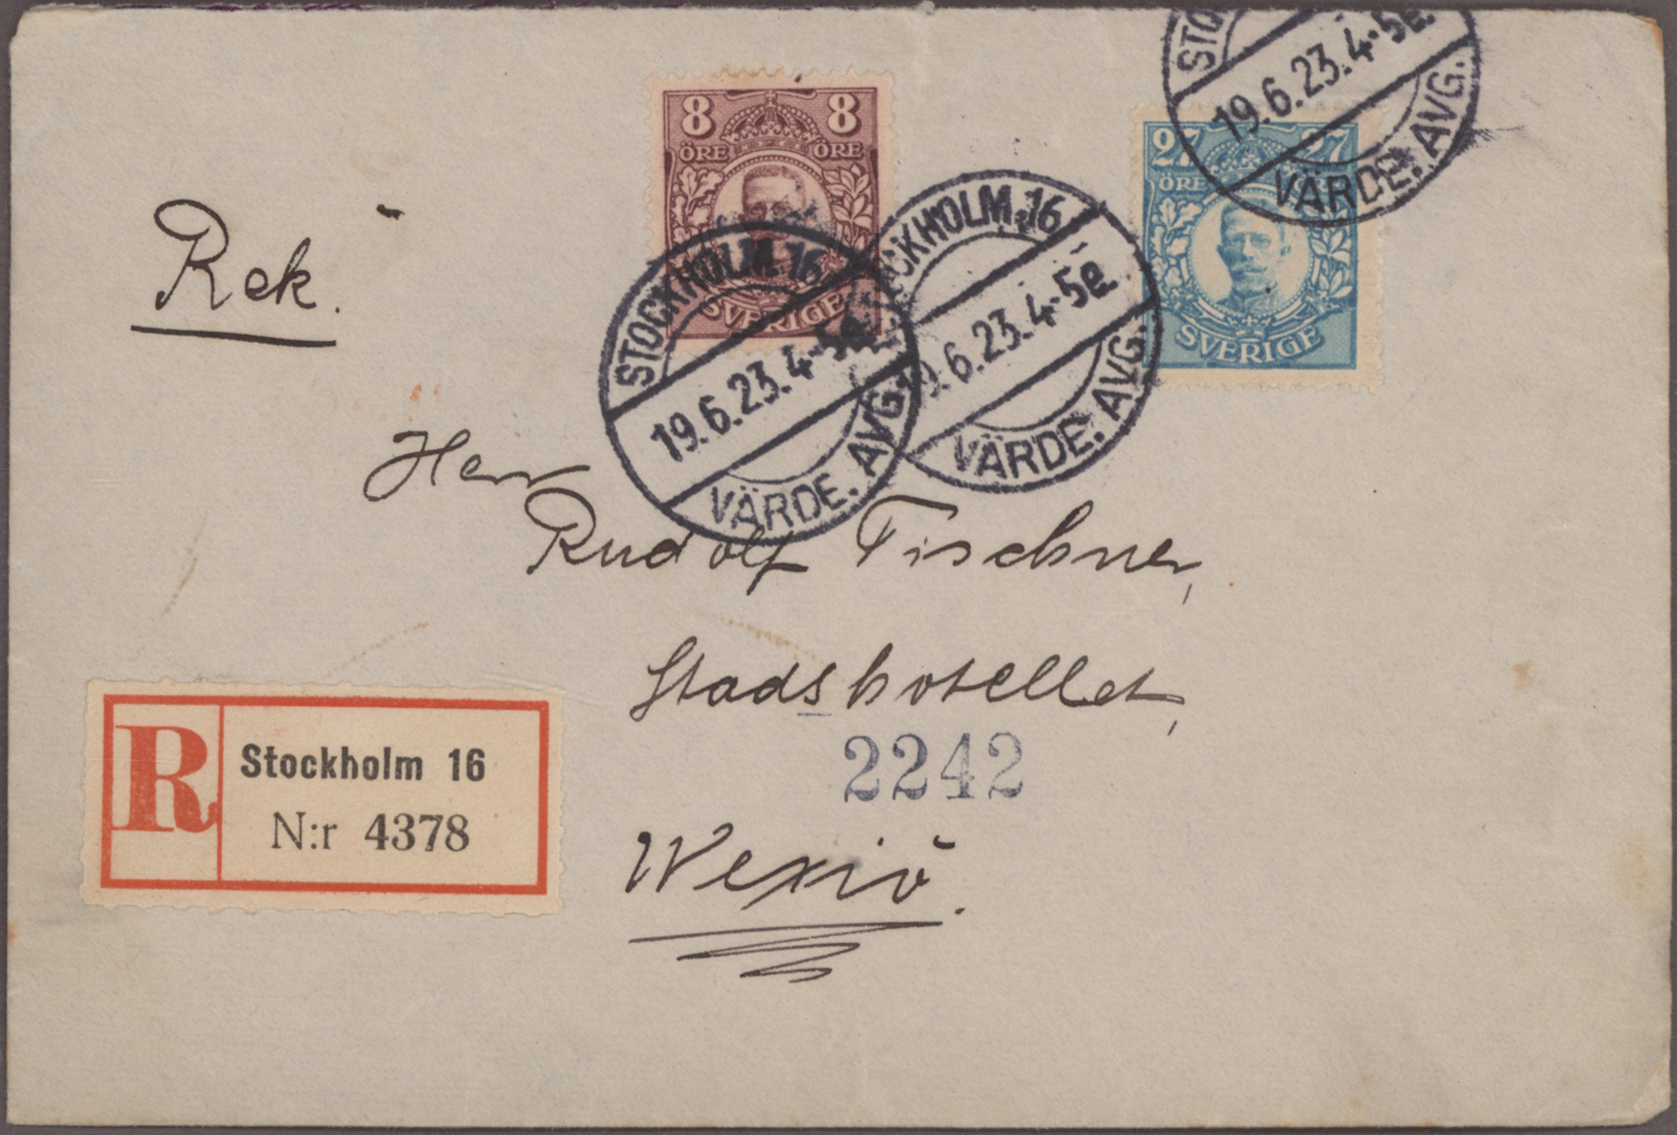 8 8
ÖRE ÖRE
SVERIGE
27 27
ÖRE
SVERIGE
STOCKHOLM.16
19.6.23.4-5e.
VÄRDE. AVG.
STOCKHOLM.16
19.6.23.4-5e.
VÄRDE. AVG.
STO
19.6.23.4-5e.
VÄRDE. AVG.
Rek.
Herr
Rudolf Fischner,
Stadshotellet,
2242
Wexiö.
R
Stockholm 16
N:r 4378